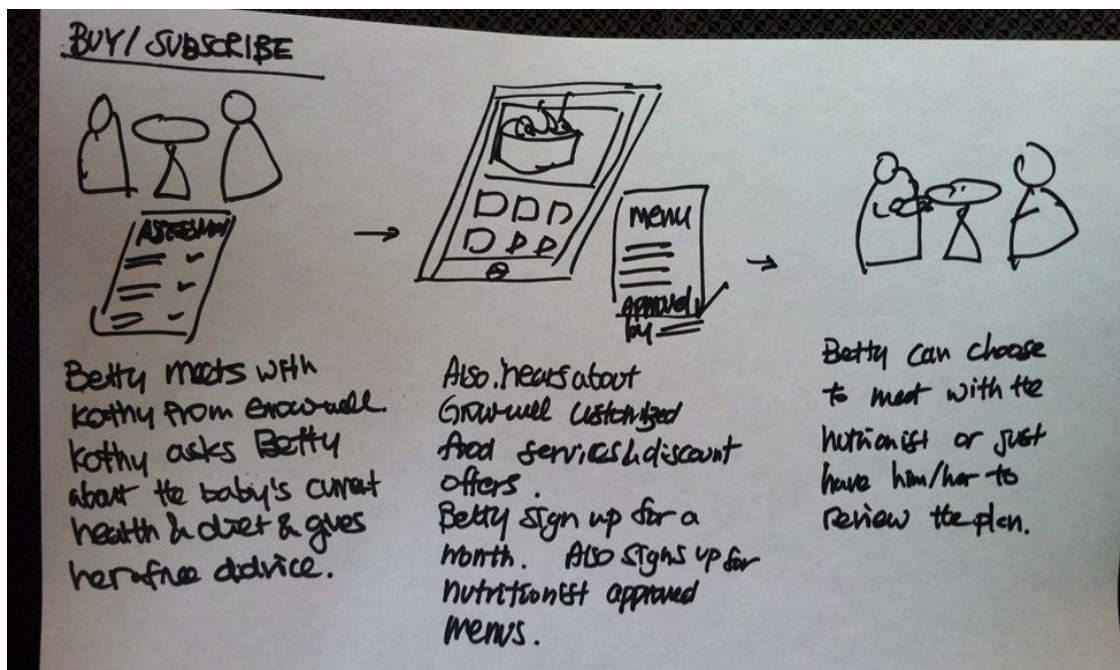 BUY/ SUBSCRIBE
ASSESSMENT
Betty meets with
Kathy from Growwell.
Kathy asks Betty
about the baby's current
health & diet & gives
her a free advice.
menu
approved
by
Also hears about
Growwell customized
food services & discount
offers.
Betty sign up for a
month. Also signs up for
nutritionist approved
menus.
Betty can choose
to meet with the
nutrionist or just
have him/her to
review the plan.